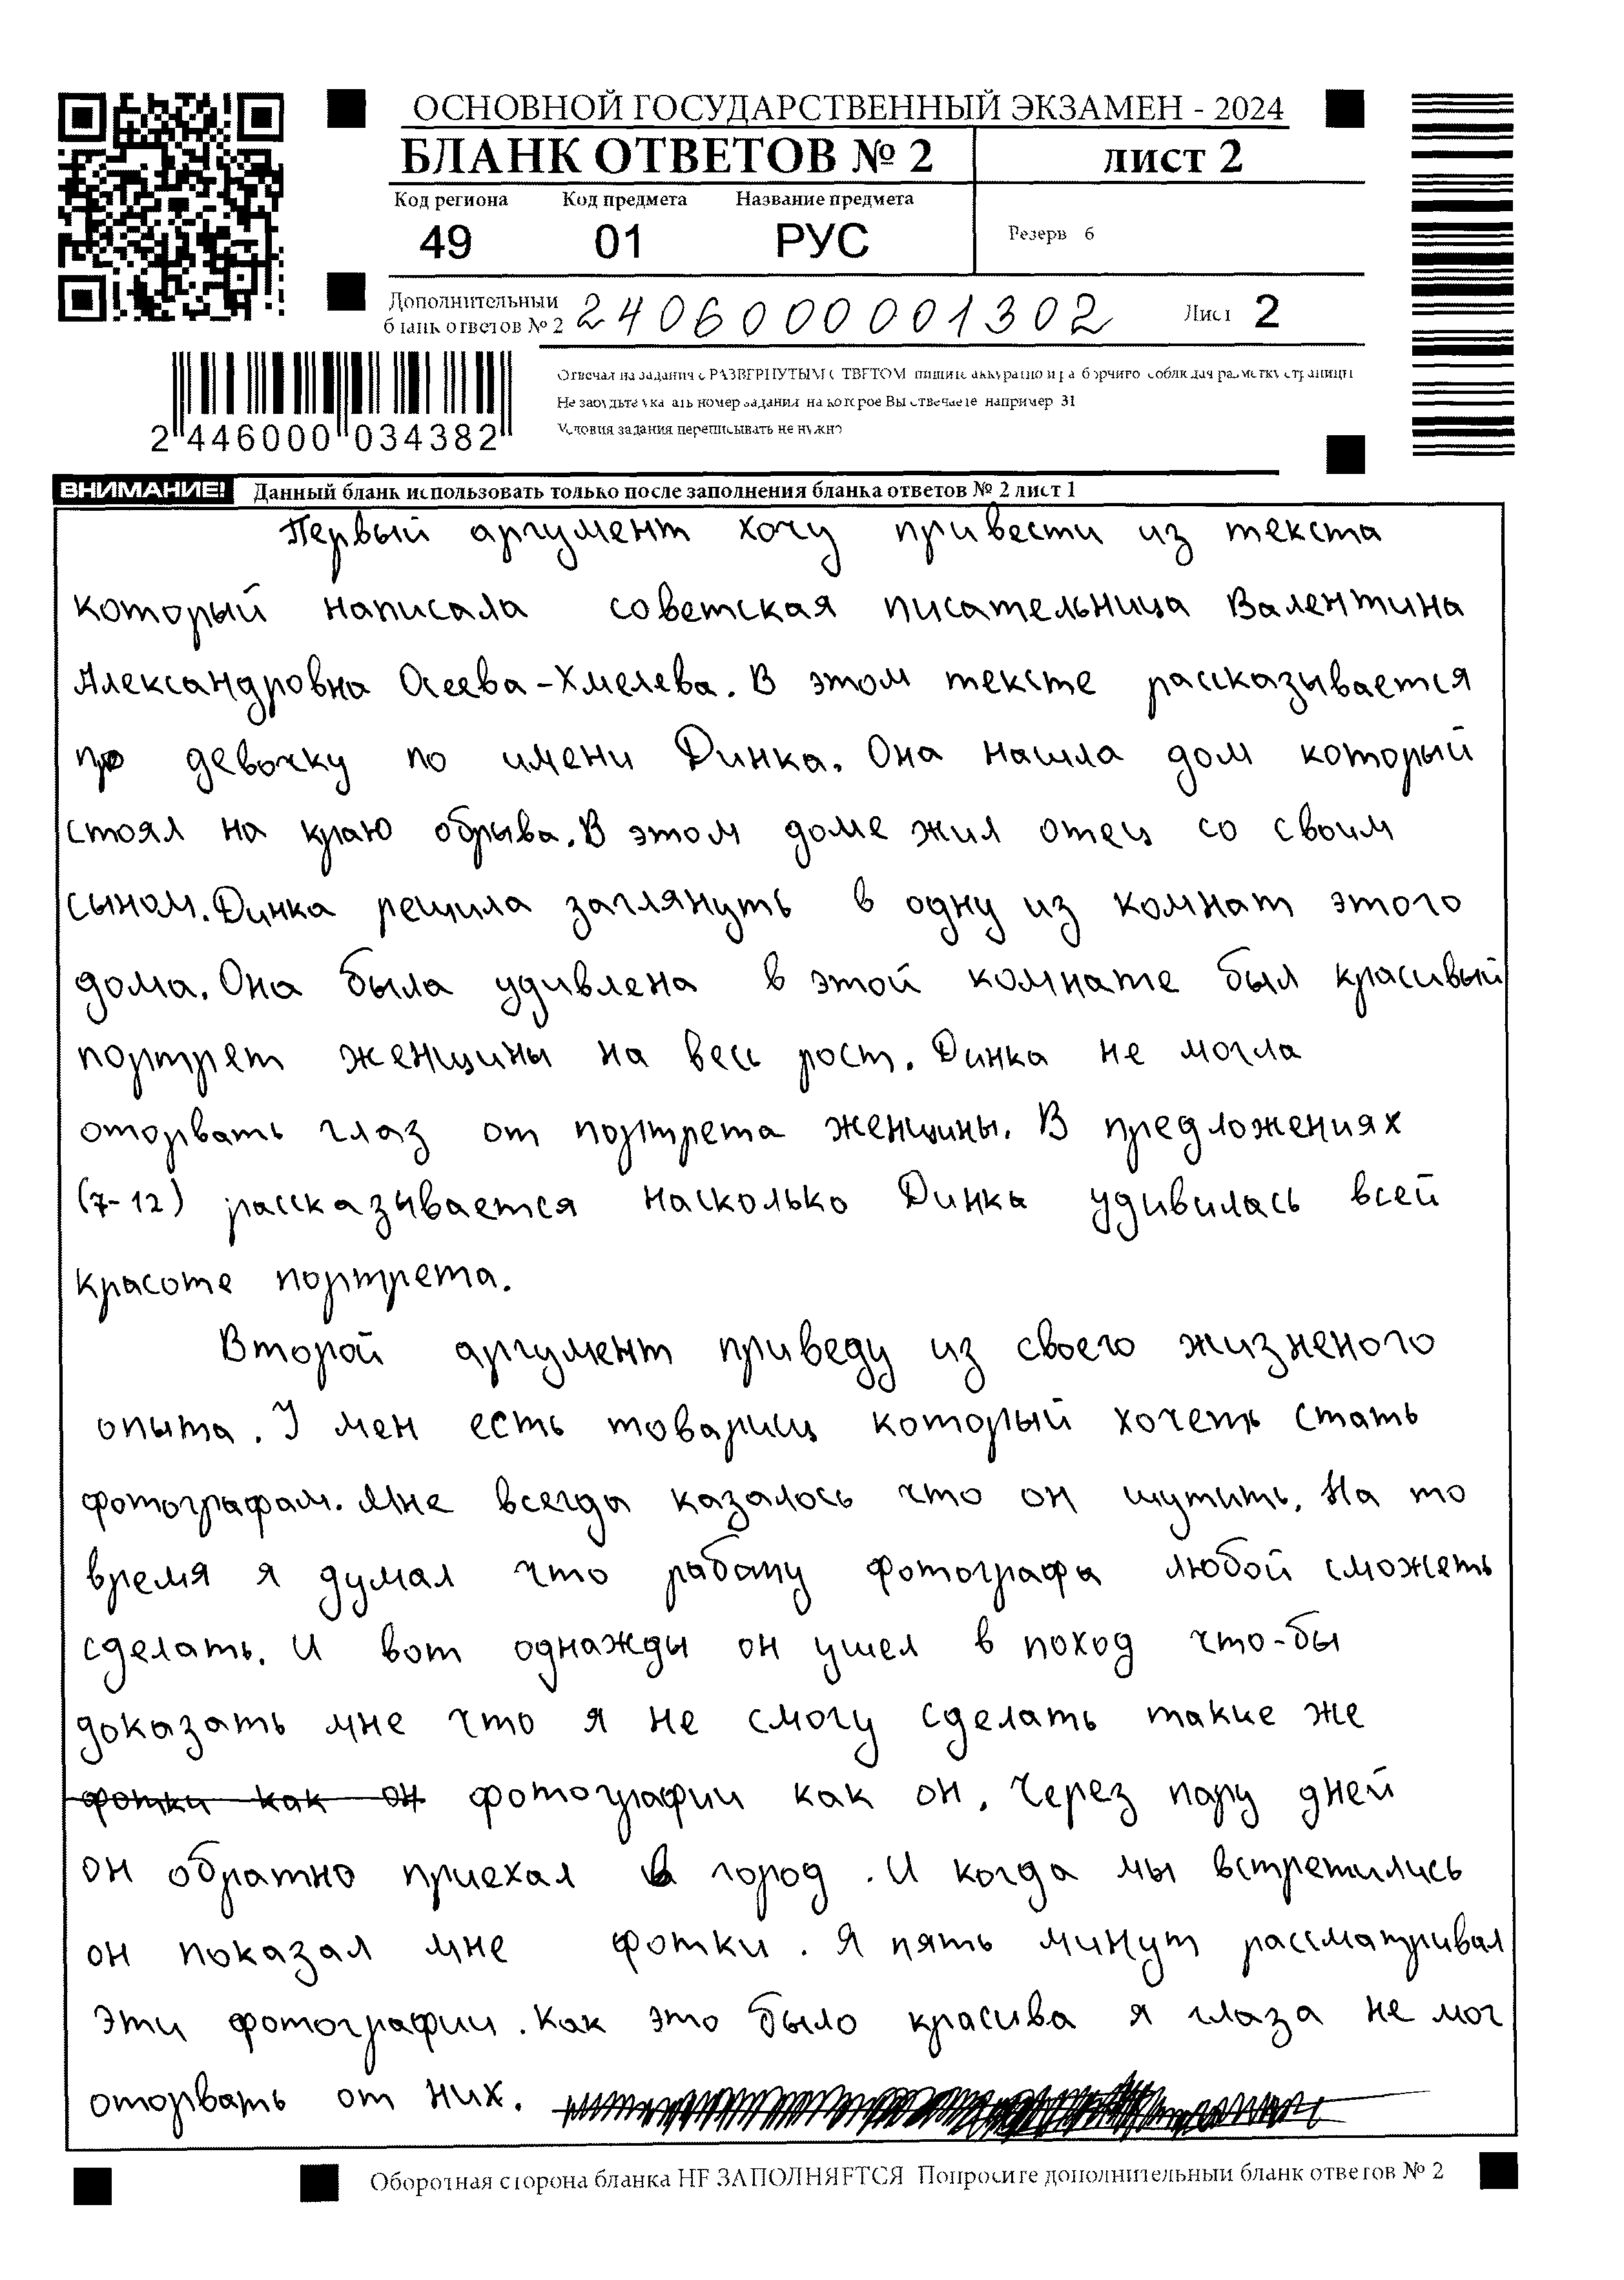 ОСНОВНОЙ ГОСУДАРСТВЕННЫЙ ЭКЗАМЕН - 2024
БЛАНК ОТВЕТОВ № 2 лист 2
Код региона Код предмета Название предмета
49 01 РУС
Резерв 6
Дополнительный
бланк ответов № 2 2406000001302 Лист 2
Отвечая на задания с РАЗВЕРНУТЫМ ОТВЕТОМ, пишите аккуратно и разборчиво, соблюдая разметку страницы
Не забудьте указать номер задания, на которое Вы отвечаете, например 31
Условия задания переписывать не нужно
2 446000 034382
ВНИМАНИЕ! Данный бланк использовать только после заполнения бланка ответов № 2 лист 1
Первый аргумент хочу привести из текста
который написала советская писательница Валентина
Александровна Осеева-Хмелева. В этом тексте рассказывается
про девочку по имени Динка. Она нашла дом который
стоял на краю обрыва. В этом доме жил отец со своим
сыном. Динка решила заглянуть в одну из комнат этого
дома. Она была удивлена в этой комнате был красивый
портрет женщины на весь рост. Динка не могла
оторвать глаз от портрета женщины. В предложениях
(7-12) рассказывается насколько Динка удивилась всей
красоте портрета.
Второй аргумент приведу из своего жизненого
опыта. У мен есть товарищ который хочеть стать
фотографам. Мне всегда казалось что он шутить. На то
время я думал что работу фотографа любой сможеть
сделать. И вот однажды он ушел в поход что-бы
доказать мне что я не смогу сделать такие же
фотки как он фотографии как он. Через пару дней
он обратно приехал в город. И когда мы встретились
он показал мне фотки. Я пять минут рассматривал
эти фотографии. Как это было красива я глаза не мог
оторвать от них.
Оборотная сторона бланка НЕ ЗАПОЛНЯЕТСЯ Попросите дополнительный бланк ответов № 2